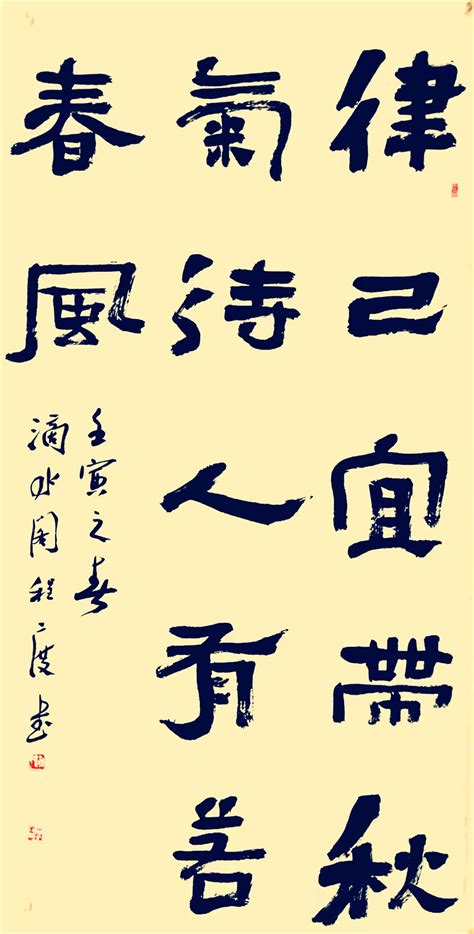 律己宜帶秋
氣待人有若
春風
壬寅之春
滴水阁程二度书